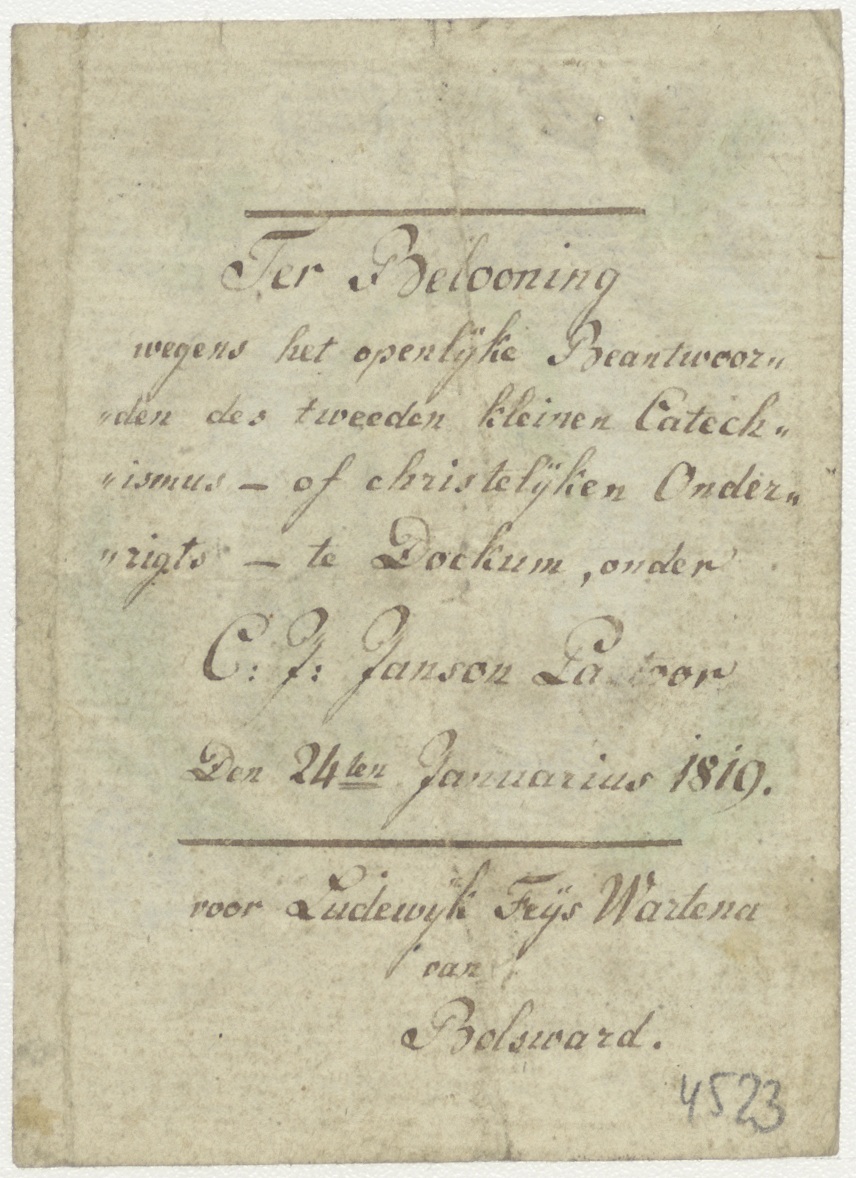 Ter Belooning
wegens het openlijke Beantwoor„
„den des tweeden kleinen Catech„
„ismus – of christelijken Onder„
„rigts – te Dockum, onder
C: J: Janson Pastoor
Den 24ten Januarius 1819.
voor Ludewijk Feijs Wartena
van
Bolsward.
4523